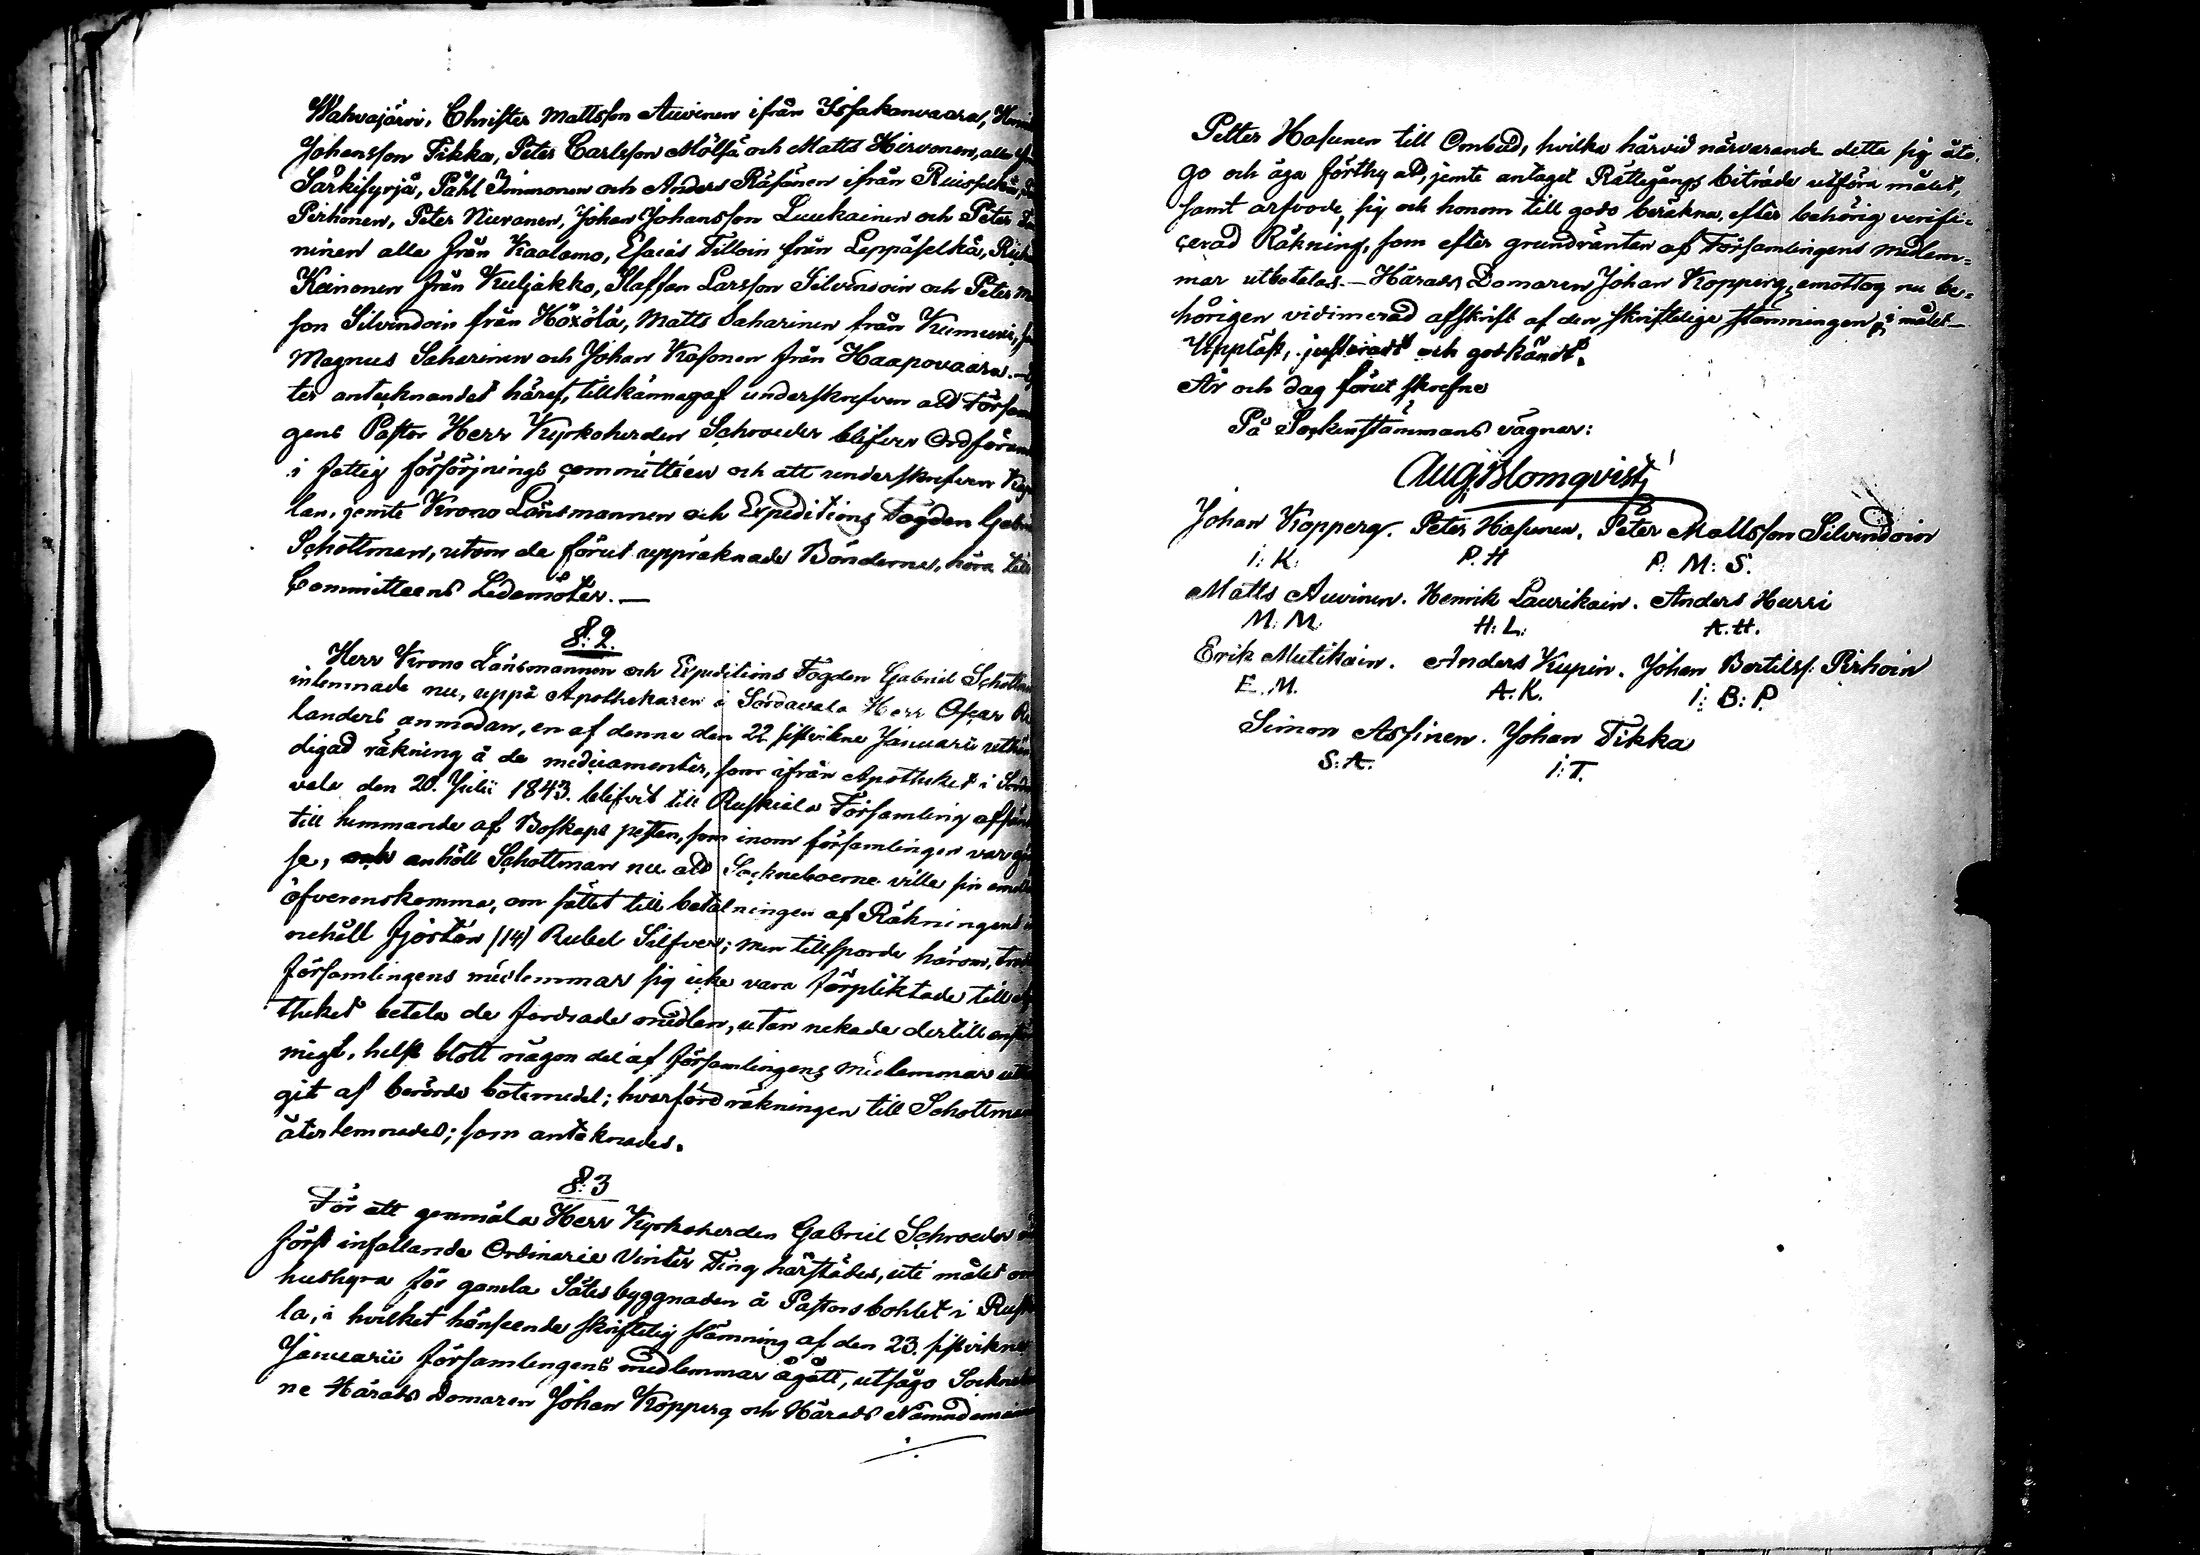 Wahvajärvi, Christer Mattsson Auvinen ifrån Issakanvaara,
Johansson Tikka, Peter Carlsson Mölsä och Matts Hirvonen, alla
Särkisyrjä, Påhl Immonen och Anders Räsänen ifrån Ruisselkä,
Pirhonen, Peter Nuvanen, Johan Johansson Luukainen och Peter
ninen alla från Kaalamo, Esaias Tilloin från Leppäselkä,
Kainonen från Kuljakko, Staffan Larsson Silvendoin och Peter
son Silvindoin från Höxölä, Matts Saharinen från Kumuri,
Magnus Saharinen och Johan Kosonen från Haapovaara.
ter antecknandet häraf, tillkännagaf underskrefven att Försam
gens Pastor Herr Kyrkoherden Schroeder blifver Ordföran
i fattig försörjnings committéen och att underskrefven
lan, jemte Krono Länsmannen och Expeditions Fogden
Schottman, utom de förut uppräknade Bönderne, höra till
Committeens Ledamöter. —
§: 2.
Herr Krono Länsmannen och Expeditions Fogden Gabriel Schottm
inlemnade nu, uppå Apothekaren i Sordavala Herr Oscar
landers anmodan, en af denne den 22 sistvikne Januarii
digad räkning å de medicamenter, som ifrån Apotheket i
vala den 20. Julii 1843. blifvit till Ruskiala Församling
till hemmande af Boskaps pesten, som inom församlingen var
se, och anhöll Schottman nu att Sockneboerne ville sin
öfverenskomma, om sättet till betalningen af Räkningens
nehåll fjorton (14) Rubel Silfver; men tillsporde härom,
församlingens medlemmar sig icke vara förpliktade till
theket betala de fordrade medlen, utan nekade dertill
nigt, helst blott någon del af församlingens medlemmar
git af berörde botemedel; hvarföre räkningen till Schottman
återlemnades; som antecknades.
§: 3
För att genmäla Herr Kyrkoherden Gabriel Schroeder
först infallande Ordinarie Vinter Ting härstädes, uti målet om
hushyra för gamla Sätesbyggnaden å Pastorsbohlet i
la, i hvilket hänseende skriftelig stämning af den 23. sistvikne
Januarii församlingens medlemmar ågått, utsågo
ne Härads Domaren Johan Kopperg och Härads Nämndemannen
./.
Petter Hasunen till Ombud, hvilka härvid närvarande detta sig åto-
go och äga förthy att, jemte antaget Rättegångs biträde utföra målet,
samt arfvode, sig och honom till godo beräkna, efter behörig verifi-
cerad Räkning, som efter grundräntan af Församlingens medlem-
mar utbetalas. — Härads Domaren Johan Kopperg, emottog nu be-
hörigen vidimerad afskrift af den skriftelige stämningen, i målet —
Uppläst, justeradt och godkändt.
År och dag förut skrefne
På Sockenstämmans vägnar:
Aug. Blomqvist
Johan Kopperg. Peter Hasunen. Peter Mattsson Silvindoin
I: K: P. H P: M: S.
Matts Auvinen. Henrik Laurikain. Anders Hurri
M: M. H: L: A. H.
Erik Mutikain. Anders Kupin. Johan Bertilss: Pirhoin
E. M. A. K. I: B: P.
Simon Assinen. Johan Tikka
S: A. I: T.